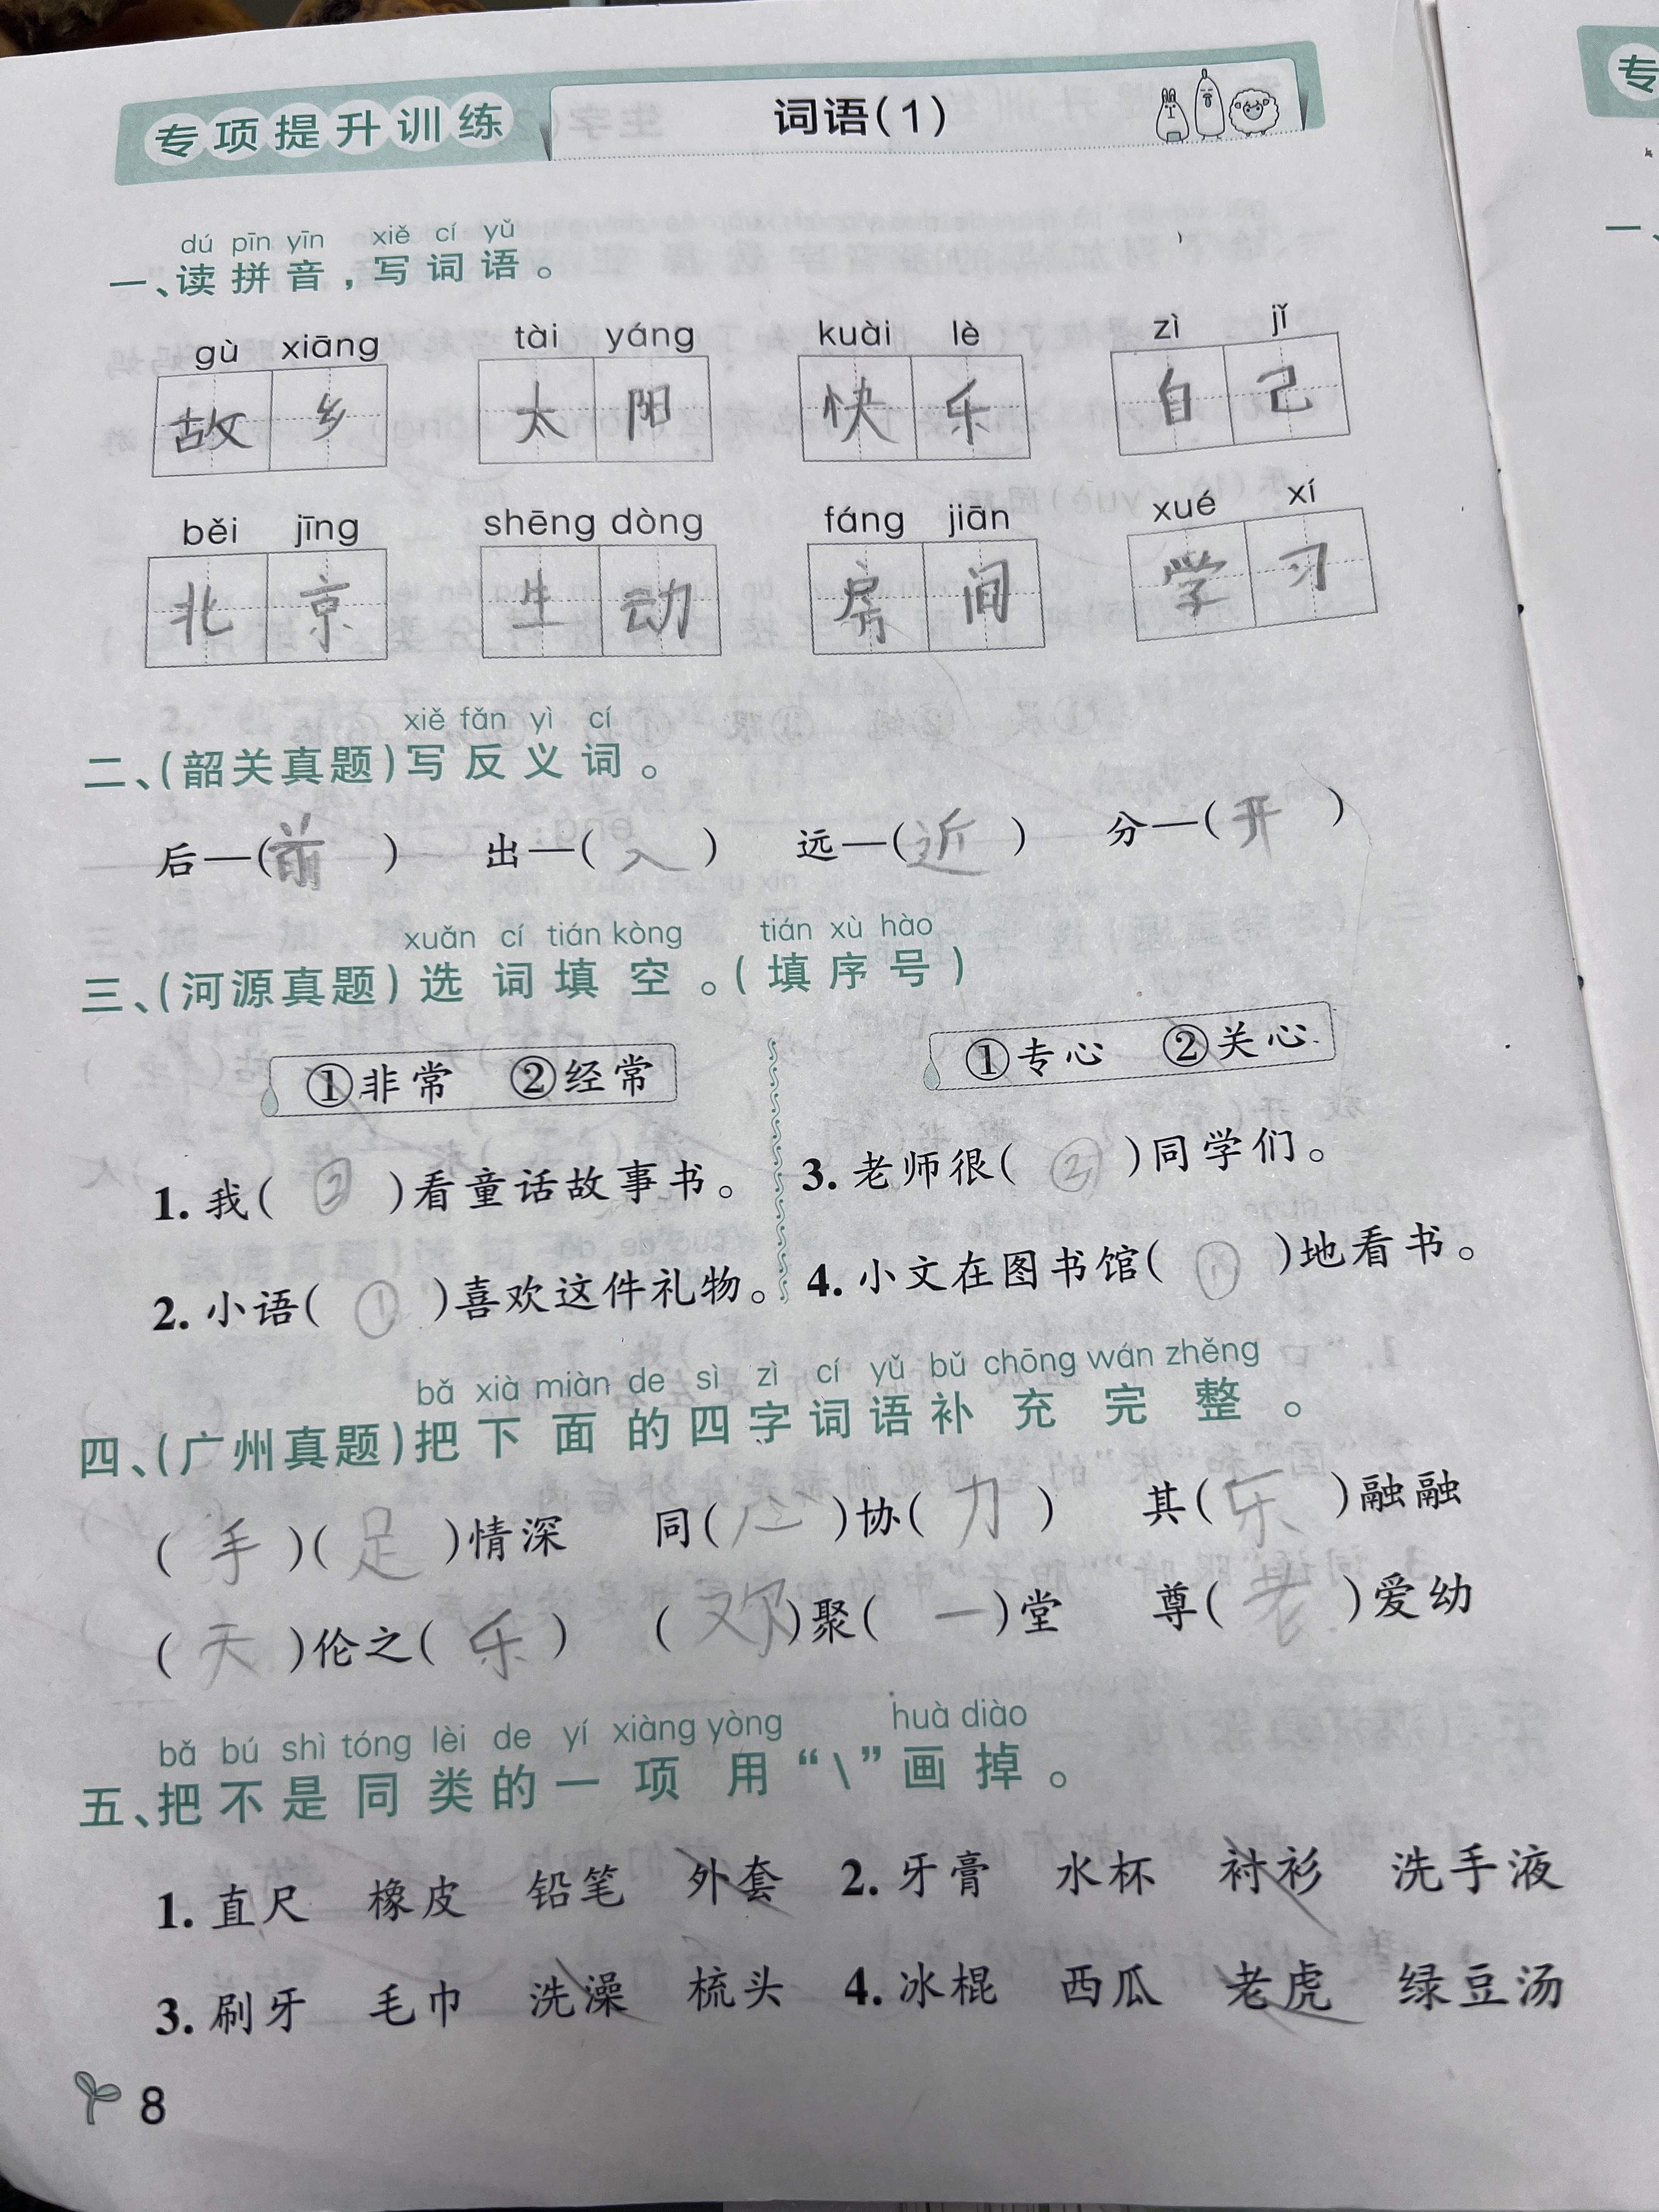 专项提升训练 词语(1)
dú pīn yīn xiě cí yǔ
一、读拼音,写词语。
gù xiāng tài yáng kuài lè zì jǐ
故乡 太阳 快乐 自己
běi jīng shēng dòng fáng jiān xué xí
北京 生动 房间 学习
xiě fǎn yì cí
二、(韶关真题)写反义词。
后—(前) 出—(入) 远—(近) 分—(开)
xuǎn cí tián kòng tián xù hào
三、(河源真题)选词填空。(填序号)
①非常 ②经常
1. 我(②)看童话故事书。
2. 小语(①)喜欢这件礼物。
①专心 ②关心
3. 老师很(②)同学们。
4. 小文在图书馆(①)地看书。
bǎ xià miàn de sì zì cí yǔ bǔ chōng wán zhěng
四、(广州真题)把下面的四字词语补充完整。
(手)(足)情深 同(心)协(力) 其(乐)融融
(天)伦之(乐) (欢)聚(一)堂 尊(老)爱幼
bǎ bú shì tóng lèi de yí xiàng yòng huà diào
五、把不是同类的一项用“\”画掉。
1. 直尺 橡皮 铅笔 外套 2. 牙膏 水杯 衬衫 洗手液
3. 刷牙 毛巾 洗澡 梳头 4. 冰棍 西瓜 老虎 绿豆汤
8
专
一、